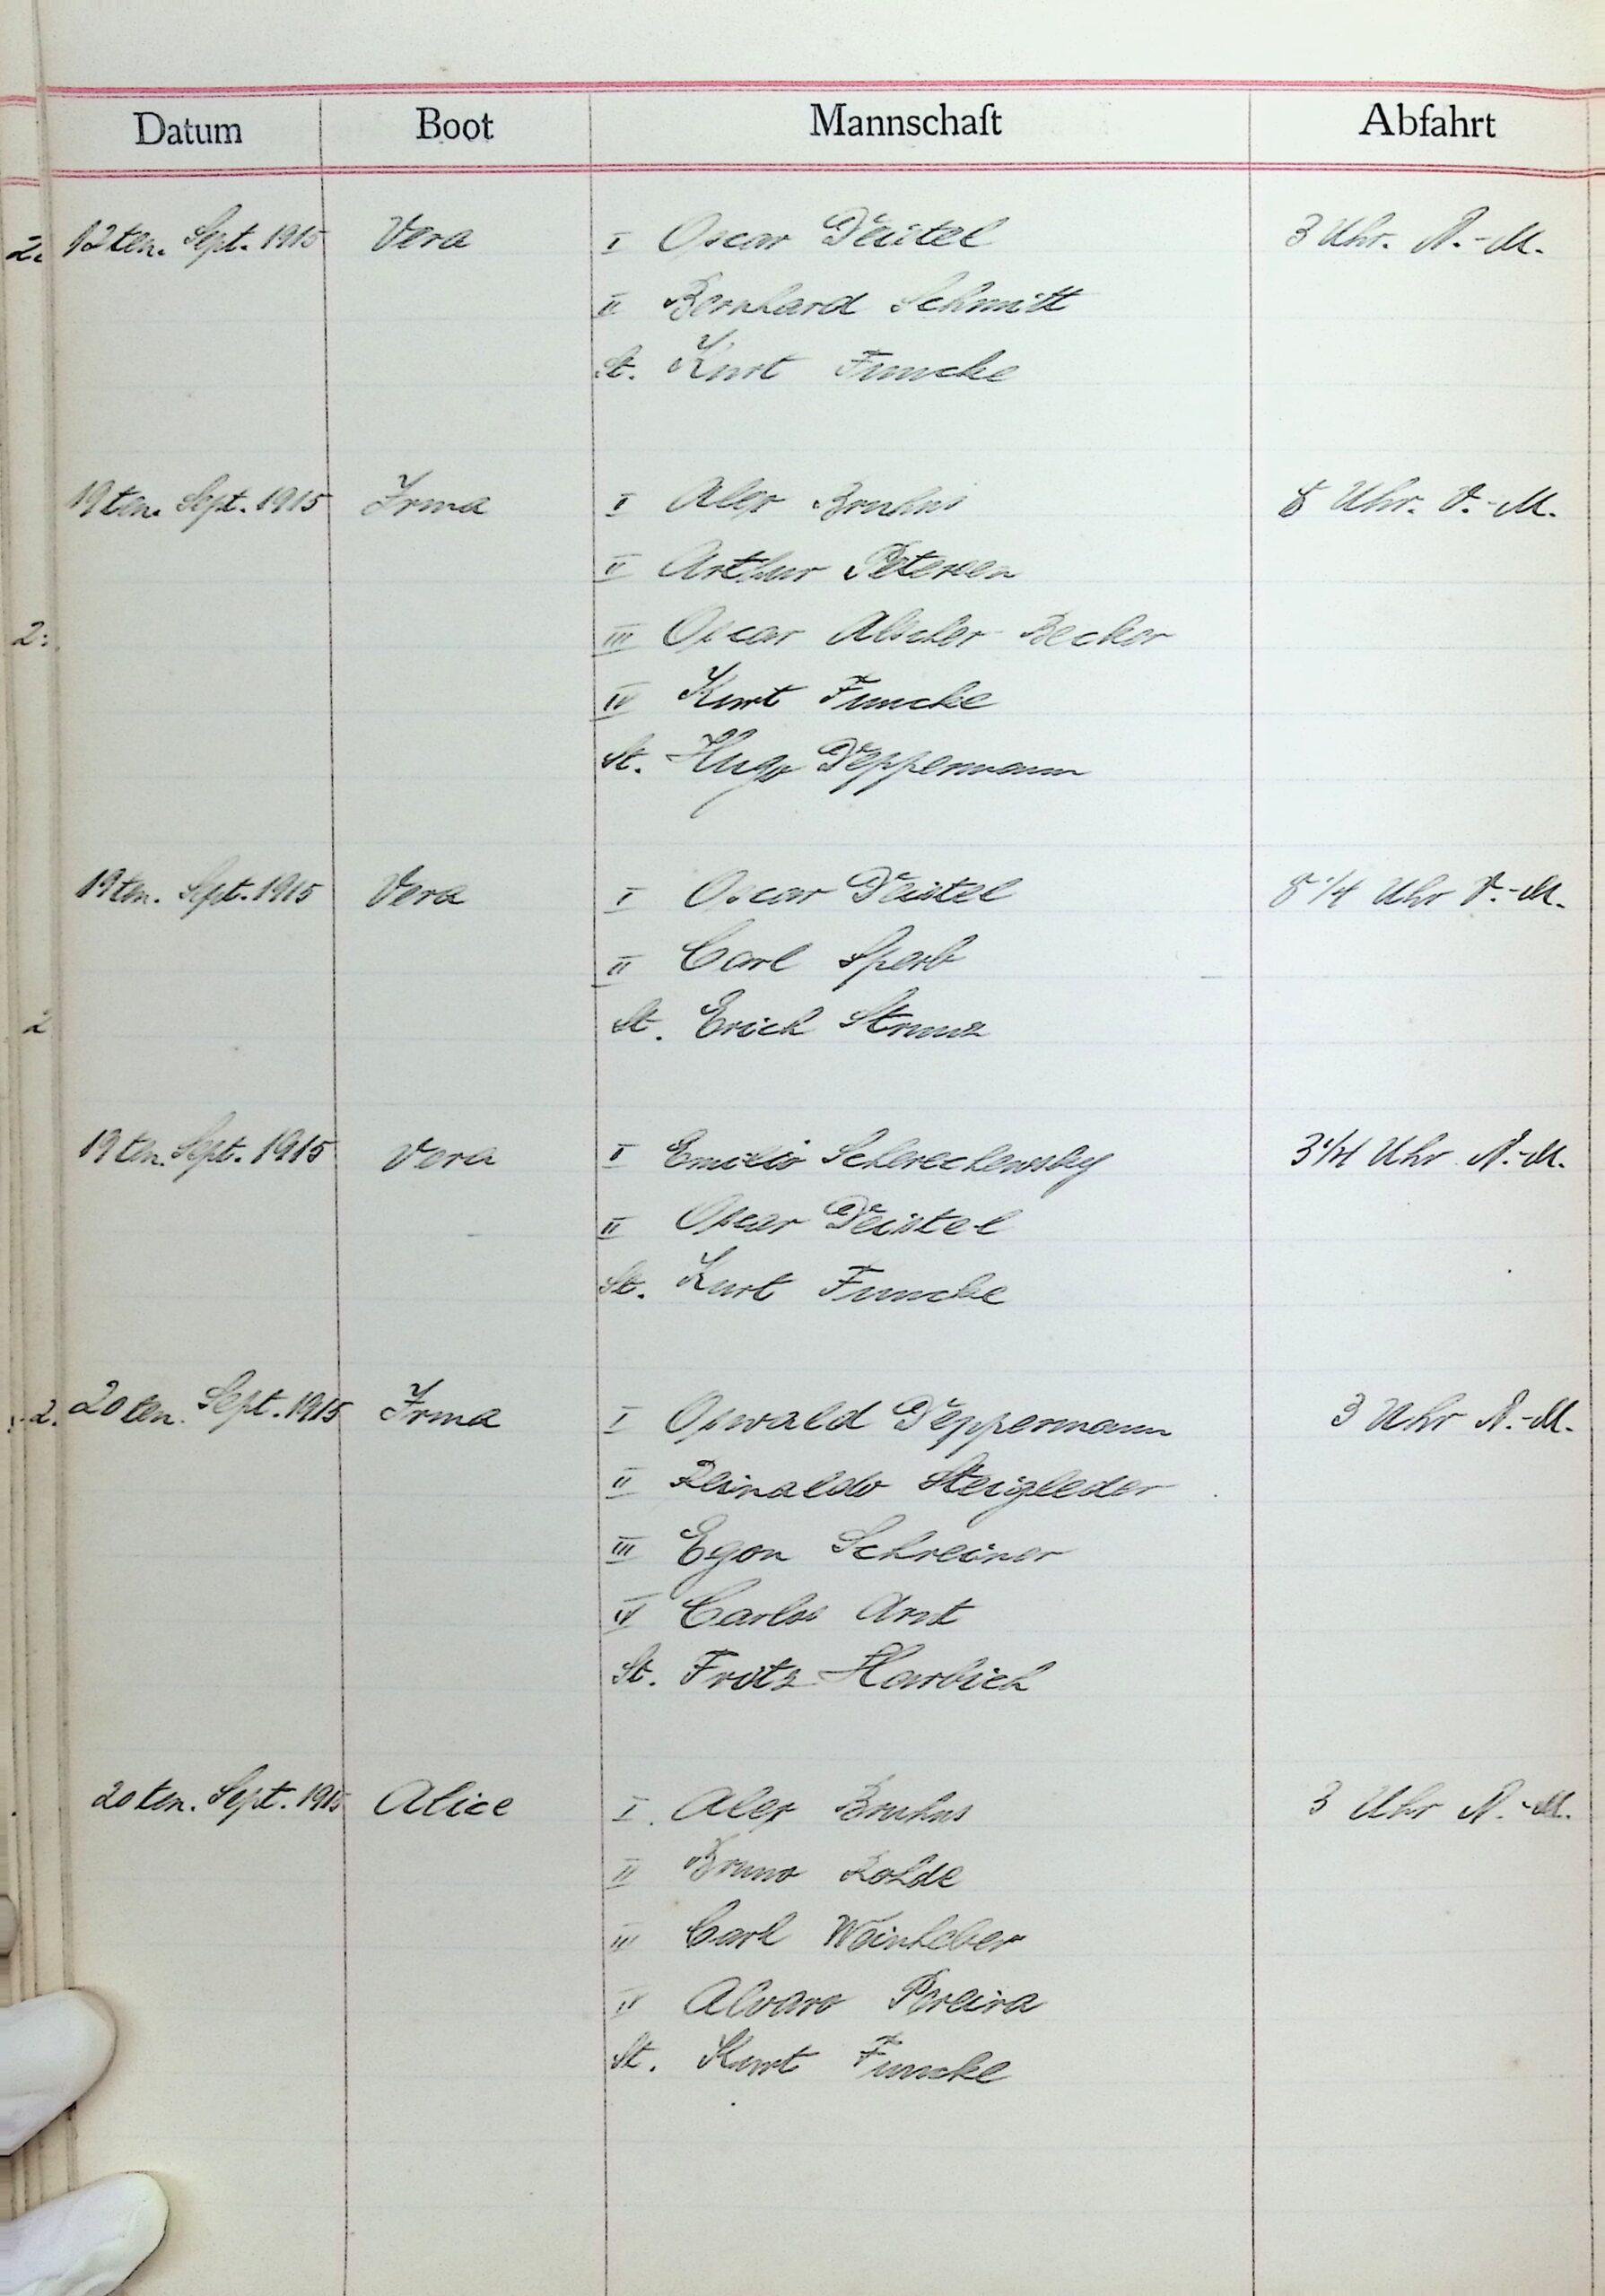 Datum Boot Mannschaft Abfahrt
12ten. Sept. 1915 Vera I Oscar Deistel 3 Uhr. N.-M.
II Bernhard Schmitt
St. Kurt Funcke
19ten. Sept. 1915 Irma I Alex Bruhns 8 Uhr. V.-M.
II Arthur Petersen
III Oscar Becker
IV Kurt Funcke
St. Hugo Deppermann
19ten. Sept. 1915 Vera I Oscar Deistel 8 1/4 Uhr V.-M.
II Carl Sperb
St. Erich Strunz
19ten. Sept. 1915 Vera I Emilio 3 1/4 Uhr N.-M.
II Oscar Deistel
St. Kurt Funcke
20ten. Sept. 1915 Irma I Oswald Deppermann 3 Uhr N.-M.
II Reinaldo Steigleder
III Egon Schreiner
IV Carlos Arnt
St. Fritz Harbich
20ten. Sept. 1915 Alice I. Alex Bruhns 3 Uhr N.-M.
II Bruno Rohde
III Carl Weinheber
IV Alvaro Pereira
St. Kurt Funcke